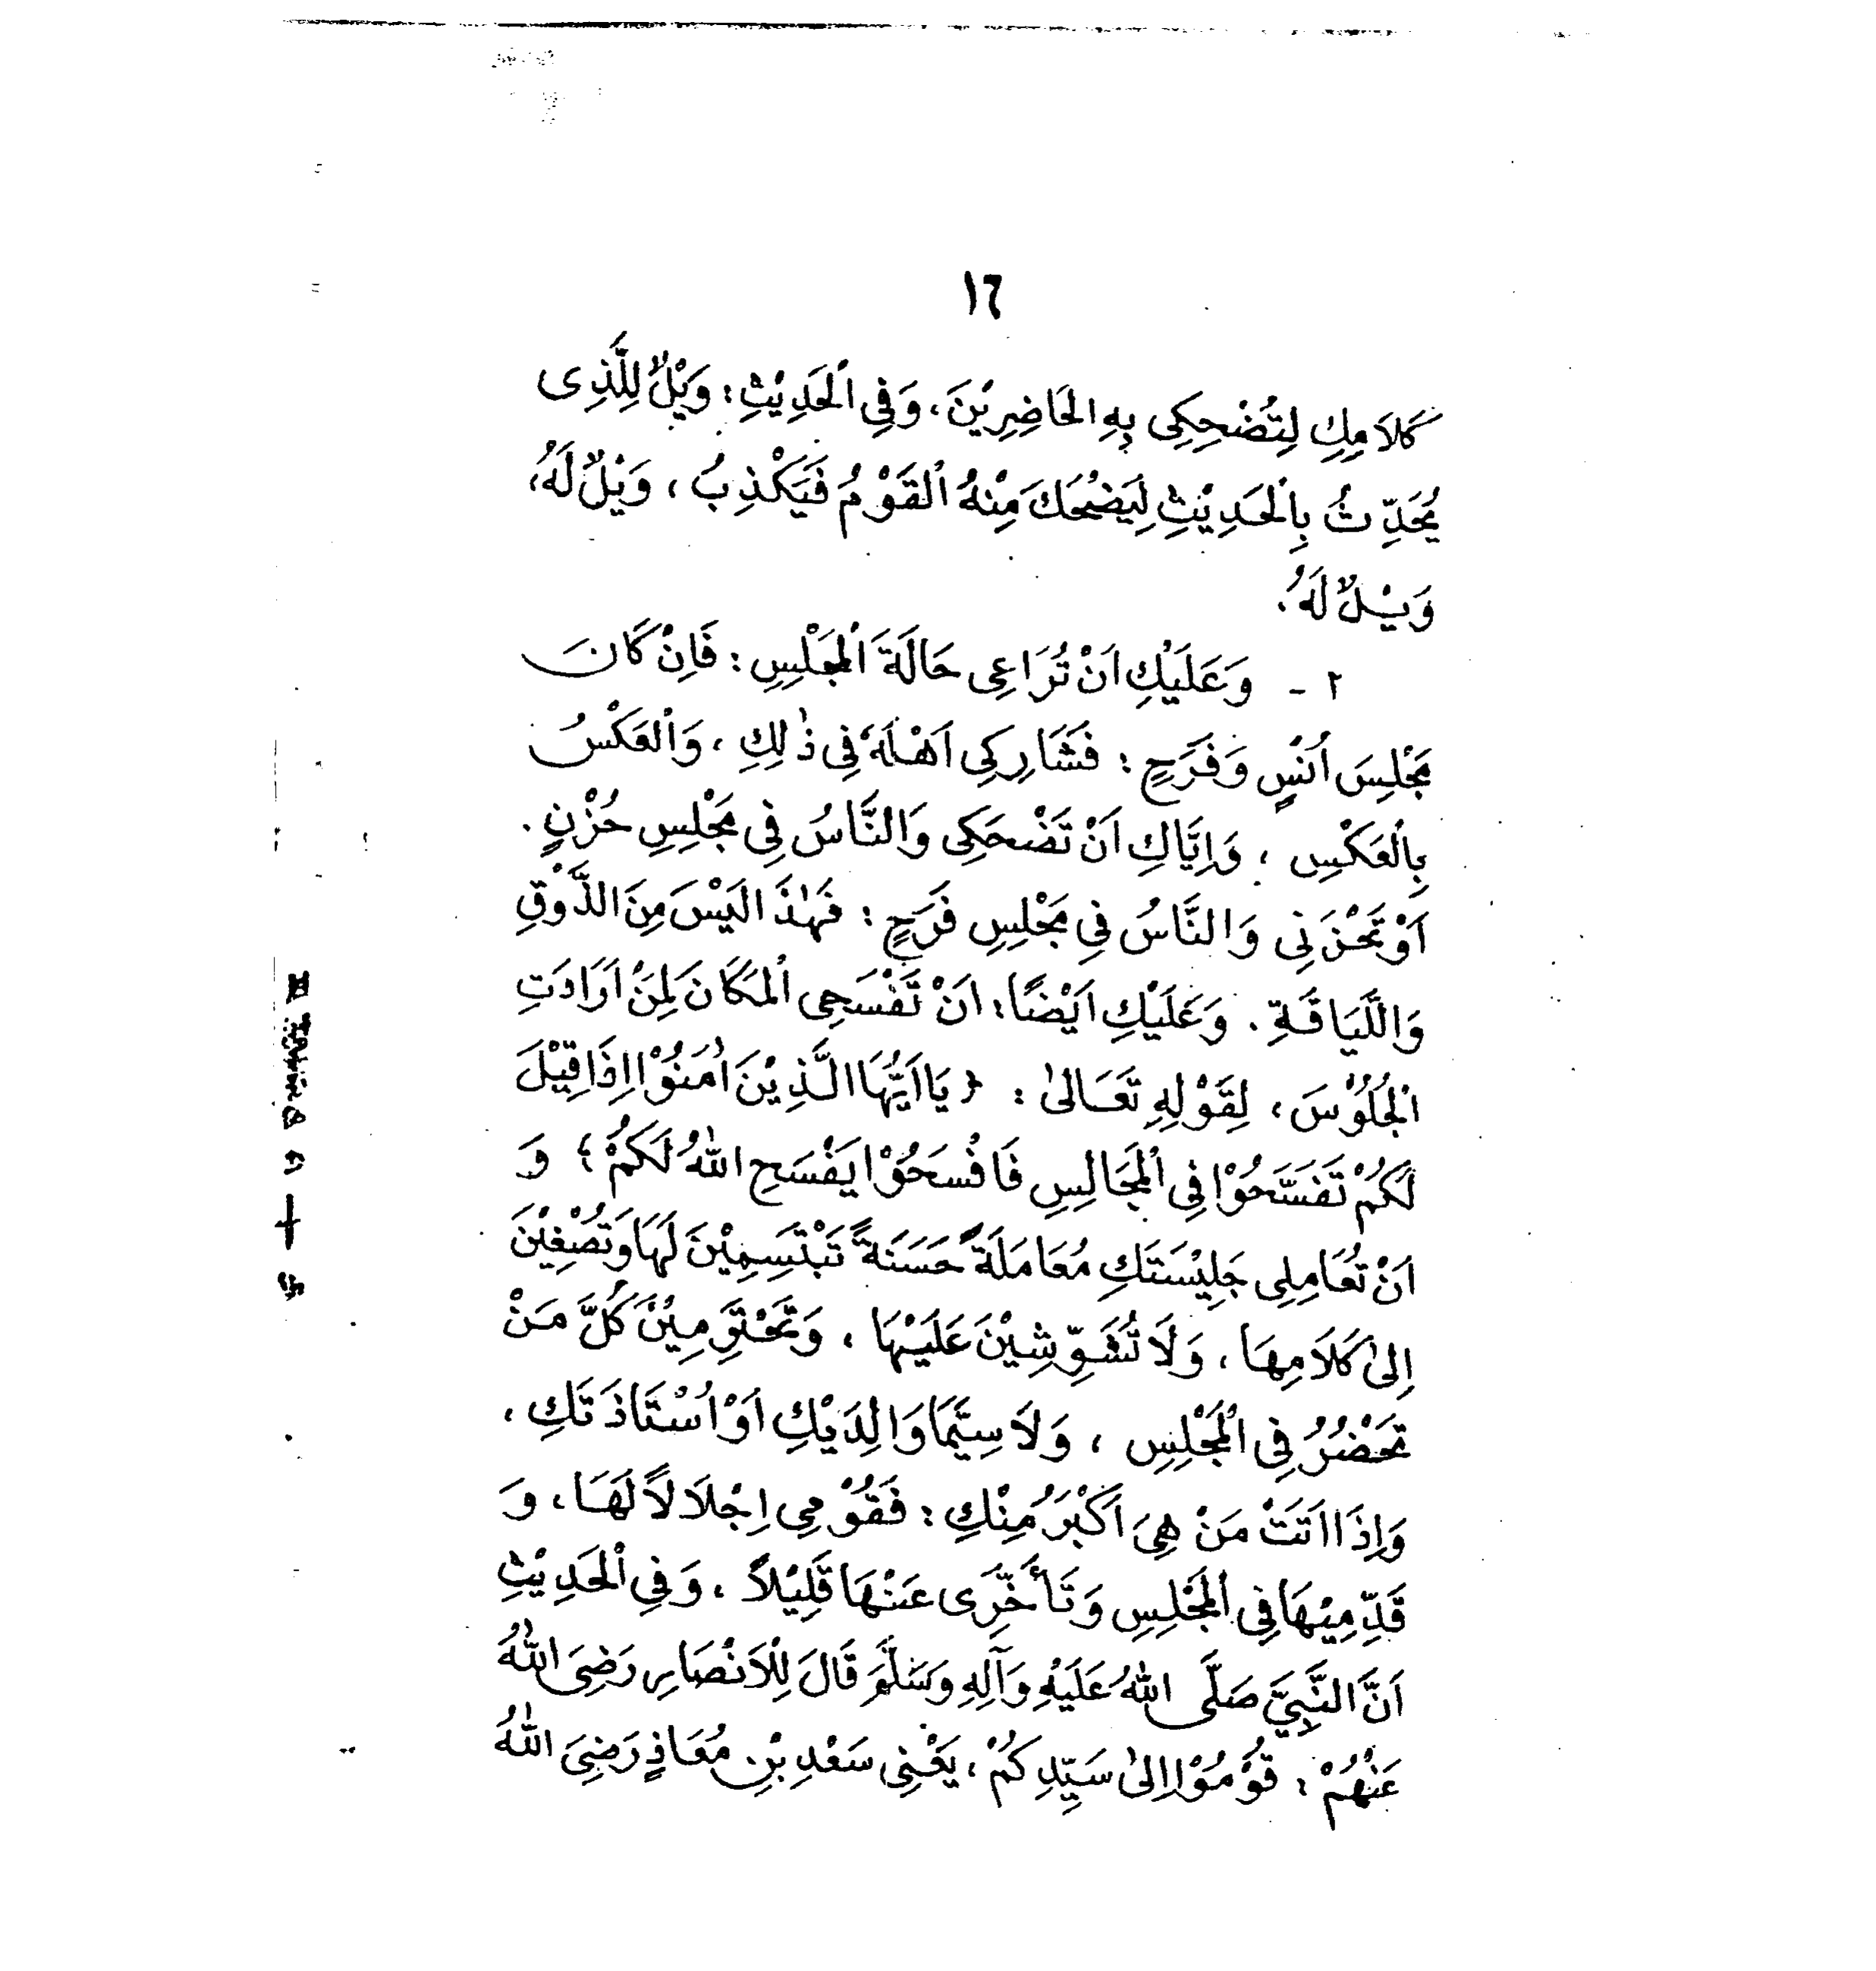 ١٦
كَلاَمِكِ لِتُضْحِكِى بِهِ الحَاضِرِيْنَ، وَفِى اْلحَدِيْثِ: وَيْلٌ لِلَّذِى
يُحَدِّثُ بِاْلحَدِيْثِ لِيَضْحَكَ مِنْهُ اْلقَوْمُ فَيَكْذِبُ، وَيْلٌ لَهُ،
وَيْلٌ لَهُ.
٢ - وَعَلَيْكِ اَنْ تُرَاعِى حَالَةَ اْلمَجْلِسِ: فَاِنْ كَانَ
مَجْلِسَ اُنْسٍ وَفَرَحٍ: فَشَارِكِى اَهْلَهُ فِى ذٰلِكِ، وَاْلعَكْسُ
بِاْلعَكْسِ، وَاِيَّاكِ اَنْ تَضْحَكِى وَالنَّاسُ فِى مَجْلِسِ حُزْنٍ.
اَوْ تَحْزَنِى وَالنَّاسُ فِى مَجْلِسِ فَرَحٍ: فَهٰذَا لَيْسَ مِنَ الذَّوْقِ
وَاللَّيَاقَةِ. وَعَلَيْكِ اَيْضًا: اَنْ تَفْسَحِى اْلمَكَانَ لِمَنْ اَرَادَتِ
اْلجُلُوْسَ، لِقَوْلِهِ تَعَالىٰ: {يَااَيُّهَا الَّذِيْنَ اٰمَنُوْا اِذَا قِيْلَ
لَكُمْ تَفَسَّحُوْا فِى اْلمَجَالِسِ فَافْسَحُوْا يَفْسَحِ اللهُ لَكُمْ؛ وَ
اَنْ تُعَامِلِى جَلِيْسَتَكِ مُعَامَلَةً حَسَنَةً تَبْتَسِمِيْنَ لَهَا وَتُصْغِيْنَ
اِلىٰ كَلاَمِهَا، وَلاَ تُشَوِّشِيْنَ عَلَيْهَا، وَتَحْتَرِمِيْنَ كُلَّ مَنْ
تَحْضُرُ فِى اْلمَجْلِسِ، وَلاَ سِيَّمَا وَالِدَيْكِ اَوْ اُسْتَاذَتَكِ،
وَاِذَا اَتَتْ مَنْ هِىَ اَكْبَرُ مِنْكِ: فَقُوْمِى اِجْلاَلاً لَهَا، وَ
قَدِّمِيْهَا فِى اْلمَجْلِسِ وَتَأَخَّرِى عَنْهَا قَلِيْلاً، وَفِى اْلحَدِيْثِ
اَنَّ النَّبِيَّ صَلَّى اللهُ عَلَيْهِ وَآلِهِ وَسَلَّمَ قَالَ لِلْاَنْصَارِ رَضِىَ اللهُ
عَنْهُمْ: قُوْمُوْا اِلىٰ سَيِّدِكُمْ، يَعْنِى سَعْدِ بْنِ مُعَاذٍ رَضِىَ اللهُ